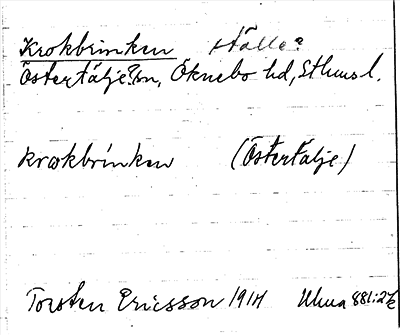 Krokbrinken ställe?
Östertälje? sn, Öknebo hd, Sthms l.
krokbrinken (Östertälje)
Torsten Ericsson 1914 Ulma 881:27